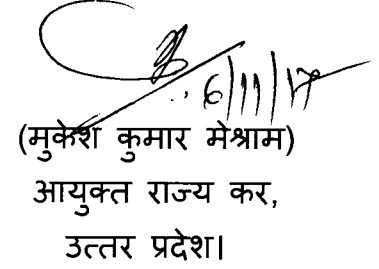 6/11/17
(मुकेश कुमार मेश्राम)
आयुक्त राज्य कर,
उत्तर प्रदेश।